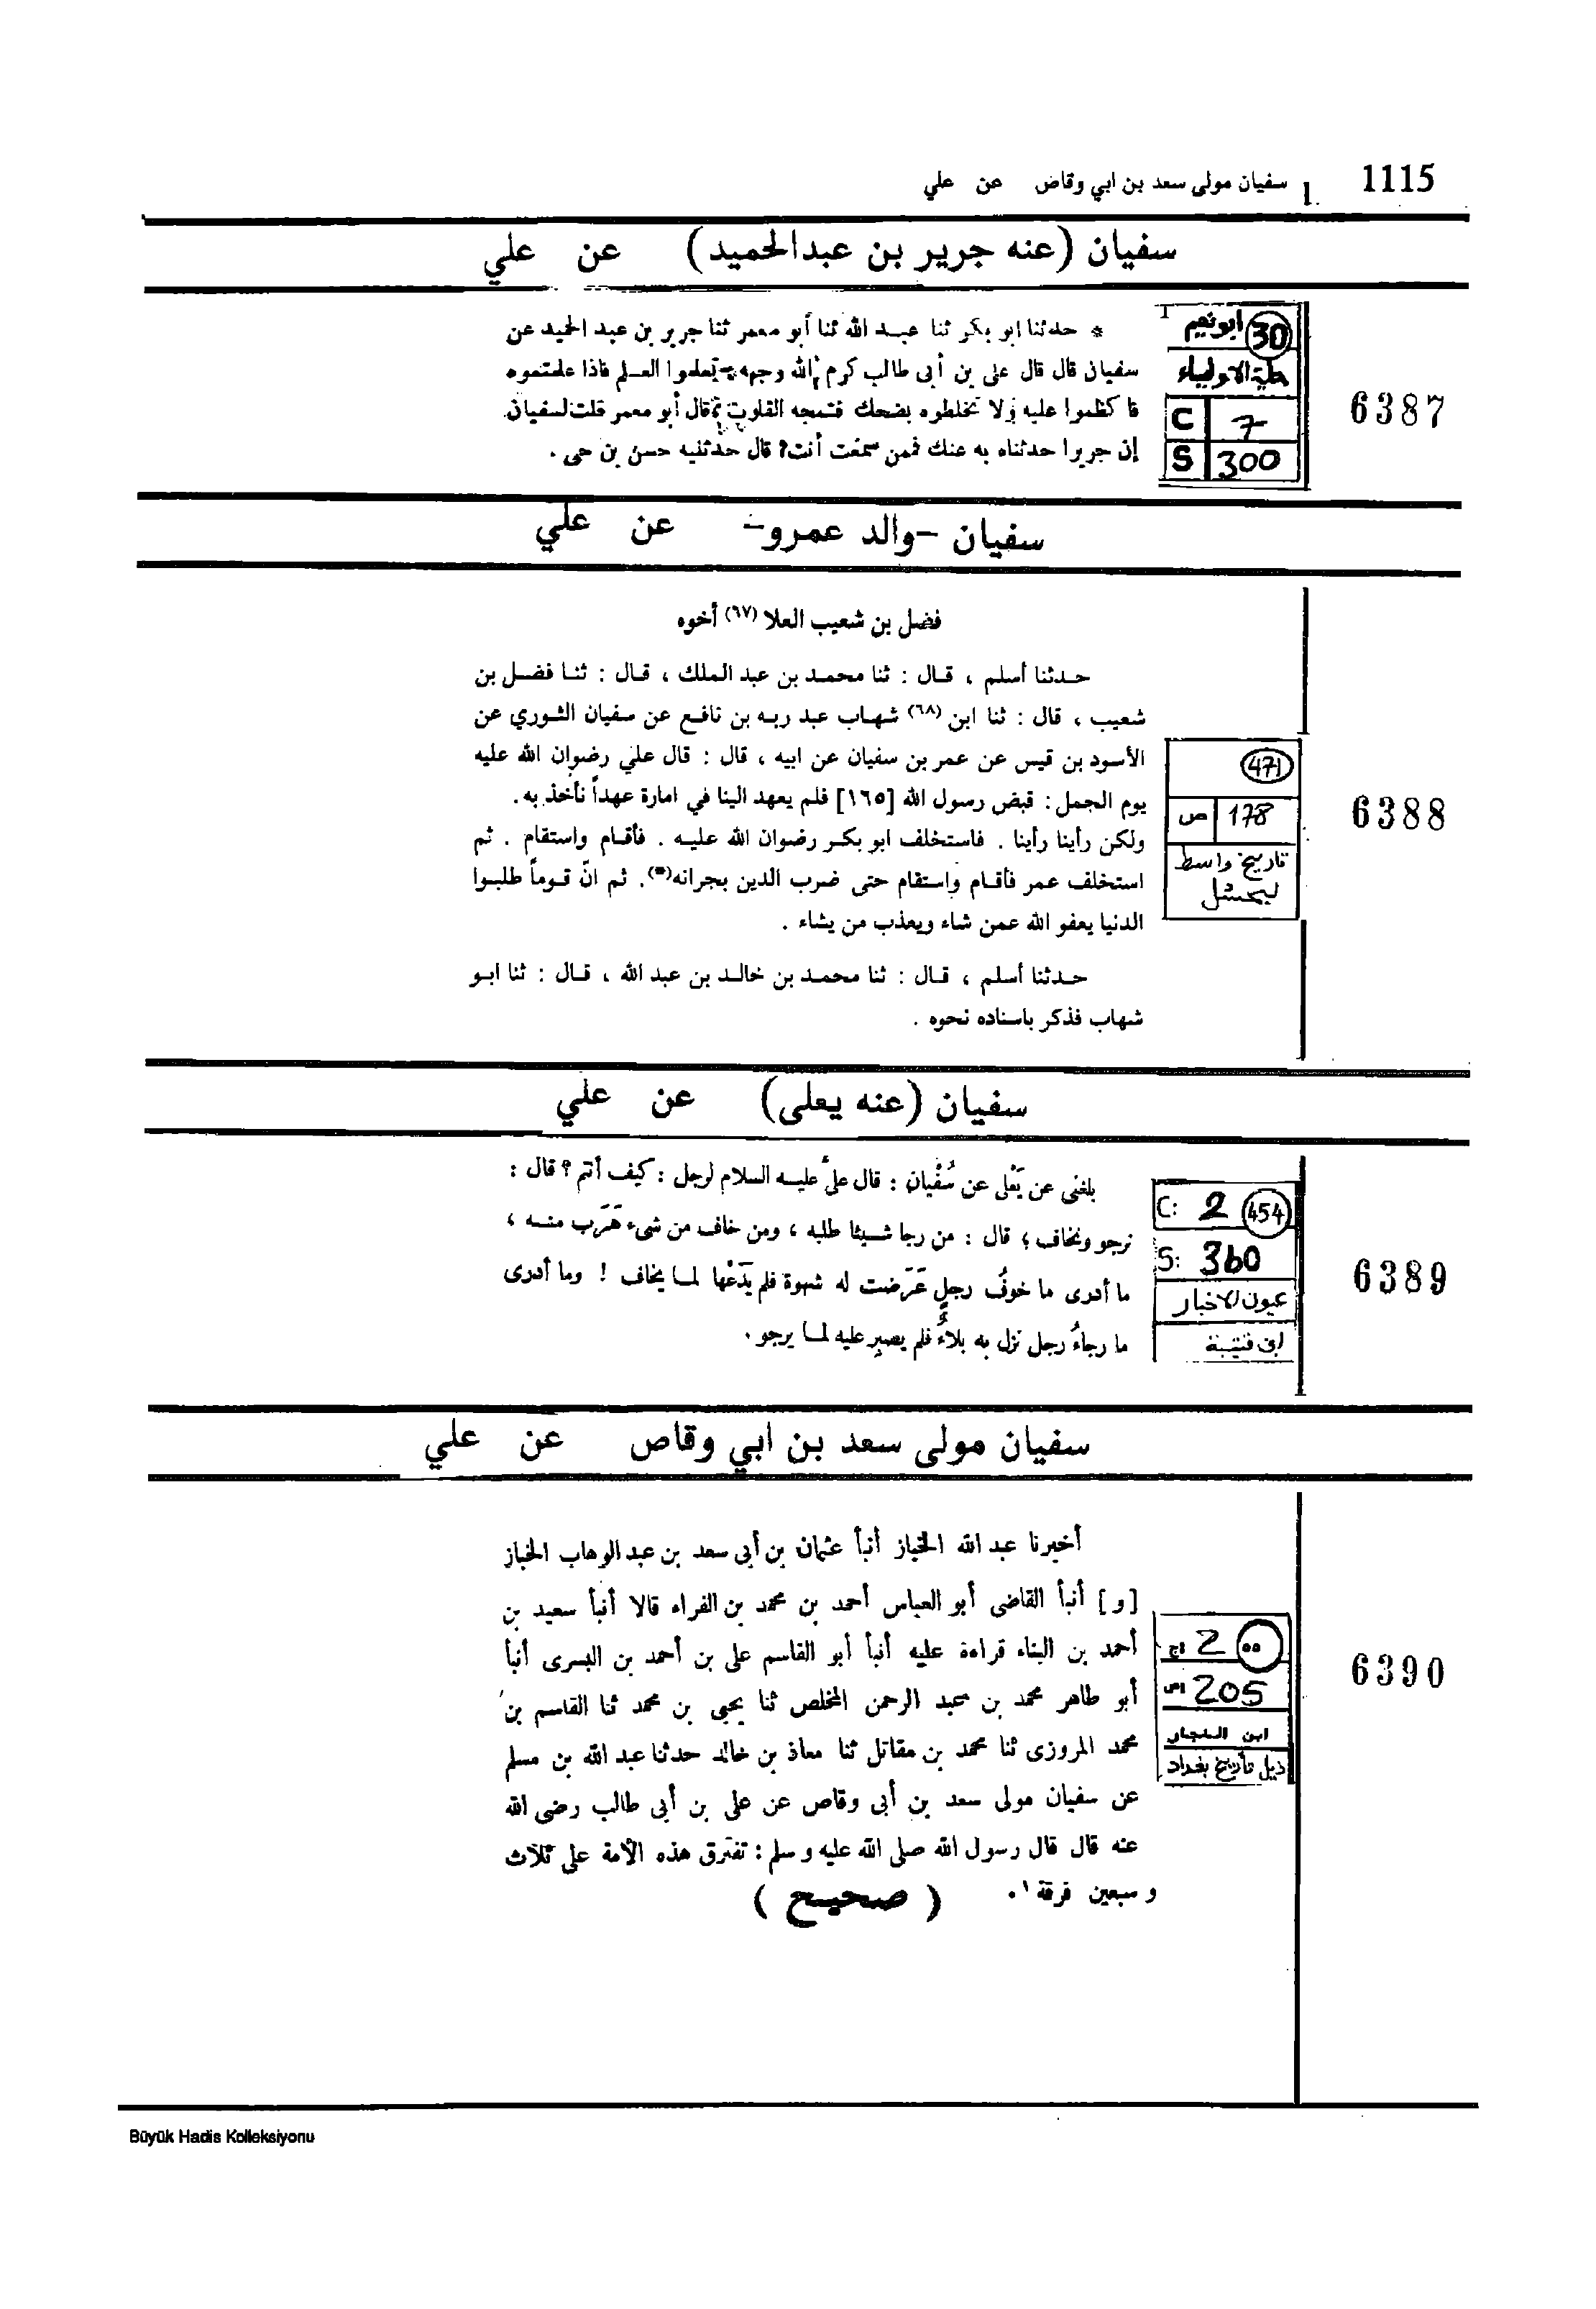 1115 سفيان مولى سعد بن ابي وقاص عن علي
سفيان (عنه جرير بن عبدالحميد) عن علي
6387
30 أبو نعيم
حلية الاولياء
C 7
S 300
* حدثنا ابو بكر ثنا عبد الله ثنا أبو معمر ثنا جرير بن عبد الحميد عن
سفيان قال قال على بن أبى طالب كرم الله وجهه : تعلموا العلم فاذا علمتموه
فا كظموا عليه ولا تخلطوه بضحك فتمجه القلوب قال أبو معمر قلت لسفيان
إن جريرا حدثناه به عنك فمن سمعت أنت؟ قال حدثنيه حسن بن حى .
سفيان -والد عمرو- عن علي
6388
471
ص 178
تاريخ واسط
لبحشل
فضل بن شعيب العلا (٦٧) أخوه
حدثنا أسلم ، قال : ثنا محمد بن عبد الملك ، قال : ثنا فضل بن
شعيب ، قال : ثنا ابن (٦٨) شهاب عبد ربه بن نافع عن سفيان الثوري عن
الأسود بن قيس عن عمر بن سفيان عن ابيه ، قال : قال علي رضوان الله عليه
يوم الجمل : قبض رسول الله [١٦٥] فلم يعهد الينا في امارة عهداً نأخذ به .
ولكن رأينا رأينا . فاستخلف ابو بكر رضوان الله عليه . فأقام واستقام . ثم
استخلف عمر فأقام واستقام حتى ضرب الدين بجرانه(*). ثم انّ قوماً طلبوا
الدنيا يعفو الله عمن شاء ويعذب من يشاء .
حدثنا أسلم ، قال : ثنا محمد بن خالد بن عبد الله ، قال : ثنا ابو
شهاب فذكر باسناده نحوه .
سفيان (عنه يعلى) عن علي
6389
C: 2 454
S: 360
عيون الاخبار
ابن قتيبة
بلغنى عن يَعْلى عن سُفْيان : قال علىٌّ عليه السلام لرجل : كيف أنتم ؟ قال :
نرجو ونخاف ؛ قال : من رجا شيئا طلبه ، ومن خاف من شىء هَرَب منه ،
ما أدرى ما خوفُ رجلٍ عَرَضت له شهوة فلم يَدَعْها لما يخاف ! وما أدرى
ما رجاءُ رجل نزل به بلاءٌ فلم يصبِر عليه لما يرجو .
سفيان مولى سعد بن ابي وقاص عن علي
6390
ج 2 00
ص 205
ابن النجار
ذيل تأريخ بغداد
أخبرنا عبد الله الخباز أنبأ عثمان بن أبى سعد بن عبد الوهاب الخباز
[ و ] أنبأ القاضى أبو العباس أحمد بن محمد بن الفراء قالا أنبأ سعيد بن
أحمد بن البناء قراءة عليه أنبأ أبو القاسم على بن أحمد بن البسرى أنبأ
أبو طاهر محمد بن عبد الرحمن المخلص ثنا يحيى بن محمد ثنا القاسم بن
محمد المروزى ثنا محمد بن مقاتل ثنا معاذ بن خالد حدثنا عبد الله بن مسلم
عن سفيان مولى سعد بن أبى وقاص عن على بن أبى طالب رضى الله
عنه قال قال رسول الله صلى الله عليه و سلم : تفترق هذه الأمة على ثلاث
و سبعين فرقة ١ .
( صحيح )
Büyük Hadis Kolleksiyonu